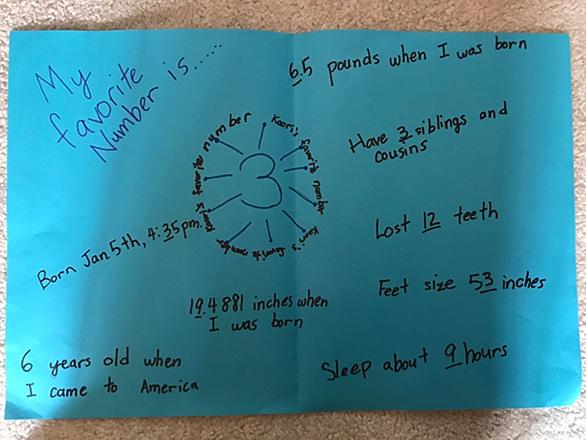 My
favorite
Number is......
6.5 pounds when I was born
Have 3 siblings and
cousins
Lost 12 teeth
Feet size 53 inches
Sleep about 9 hours
3
Kaori's favorite number
Kaori's favorite number
favorite number
Born Jan 5th, 4:35pm.
19.4881 inches when
I was born
6 years old when
I came to America